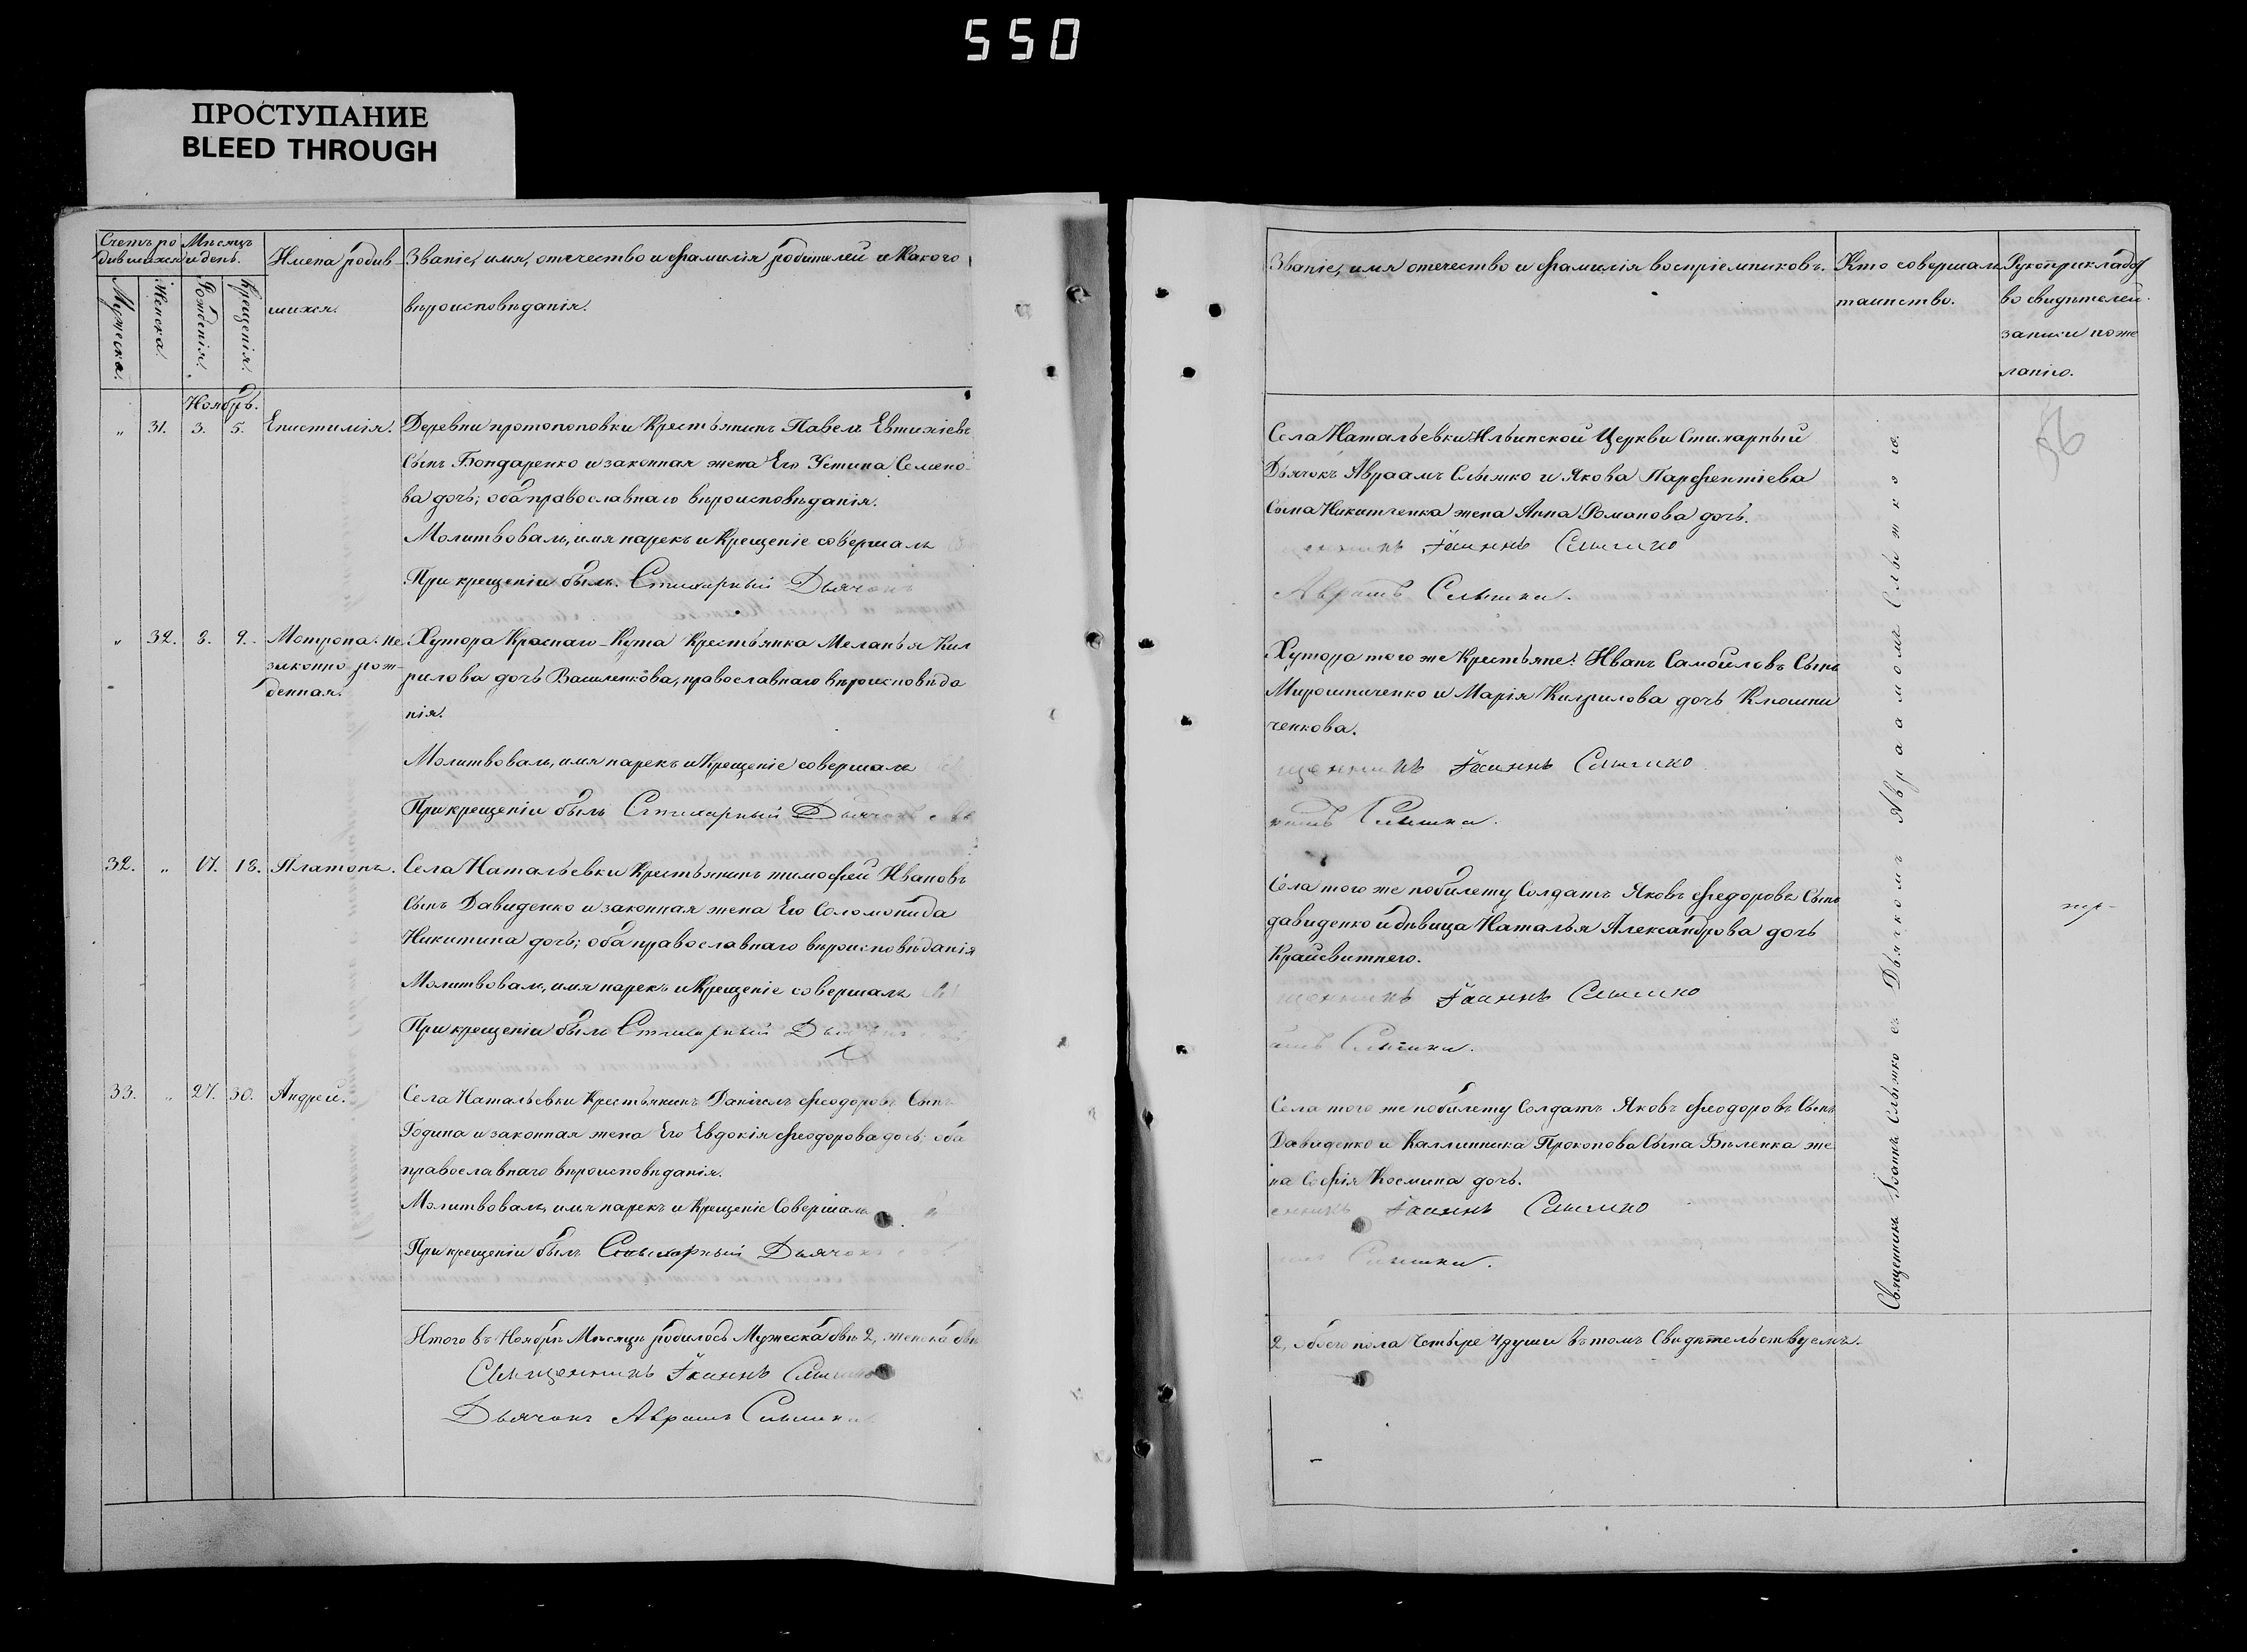 550
ПРОСТУПАНИЕ
BLEED THROUGH
Счетъ ро
дившихся
Мѣсяцъ
и день.
Мужеска.
Женска.
Рожденія.
Крещенія.
Имена родив
шихся.
Званіе, имя, отечество и фамилія родителей и какого
вѣроисповѣданія.
Ноябрь.
„ 31. 3. 5. Епистимія. Деревни протопоповки Крестьянинъ Павелъ Евтихіевъ
Сынъ Бондаренко и законная жена Его Устина Семено-
ва дочь; оба православнаго вѣроисповѣданія.
Молитвовалъ, имя нарекъ и Крещеніе совершалъ
При крещеніи былъ. Стихарный Дьячокъ
„ 32. 8. 9. Мотрона. Не
законно рож-
денная.
Хутора Краснаго-Кута Крестьянка Меланья Кил
рилова дочь Василенкова, православнаго вѣроисповѣда
нія.
Молитвовалъ, имя нарекъ и Крещеніе совершалъ
При крещеніи былъ Стихарный Дьячокъ
32. „ 17. 18. Платонъ. Села Натальевки Крестьянинъ тимофей Ивановъ
Сынъ Давиденко и законная жена Его Соломонида
Никитина дочь; оба православнаго вѣроисповѣданія
Молитвовалъ, имя нарекъ и Крещеніе совершалъ
При крещеніи былъ Стихарный
33. „ 27. 30. Андрей. Села Натальевки Крестьянинъ Даніилъ Феодоровъ Сынъ
Година и законная жена Его Евдокія Феодорова дочь; оба
православнаго вѣроисповѣданія.
Молитвовалъ, имя нарекъ и Крещеніе Совершалъ
При крещеніи былъ Стихарный Дьячокъ
Итого въ Ноябрѣ Мѣсяцѣ родилось Мужеска двѣ 2, женска двѣ
Священникъ Іоаннъ Слыжко
Дьячокъ Авраамъ Слыжко
Званіе, имя отечество и фамилія воспріемниковъ.
Кто совершалъ
таинство.
Рукоприкладст
во свидѣтелей
записи поже
ланію.
56
Села Натальевки Ильинской Церкви Стихарный
Дьячокъ Авраамъ Слыжко и Якова Парфентіева
Сына Никитченка жена Анна Романова дочь.
Іоаннъ Слыжко
Авраамъ Слыжко.
Хутора того же Крестьяне: Иванъ Самойловъ Сынъ
Мирошниченко и Марія Килрилова дочь Клюшни
ченкова.
Іоаннъ Слыжко
Слыжко.
Села того же побилету Солдатъ Яковъ Федоровъ Сынъ
давиденко и дѣвица Наталья Александрова дочь
Крайсвитнего.
Іоаннъ Слыжко
Слыжко.
Села того же побилету Солдатъ Яковъ Феодоровъ Сынъ
Давиденко и Каллиника Прокопова Сына Бѣленка же
на Софія Космина дочь.
Іоаннъ Слыжко
Слыжко.
2, обоего пола Четыре 4 души въ томъ Свидѣтельствуемъ.
Священникъ Іоаннъ Слыжко съ Дьячкомъ Авраамомъ Слыжкою.